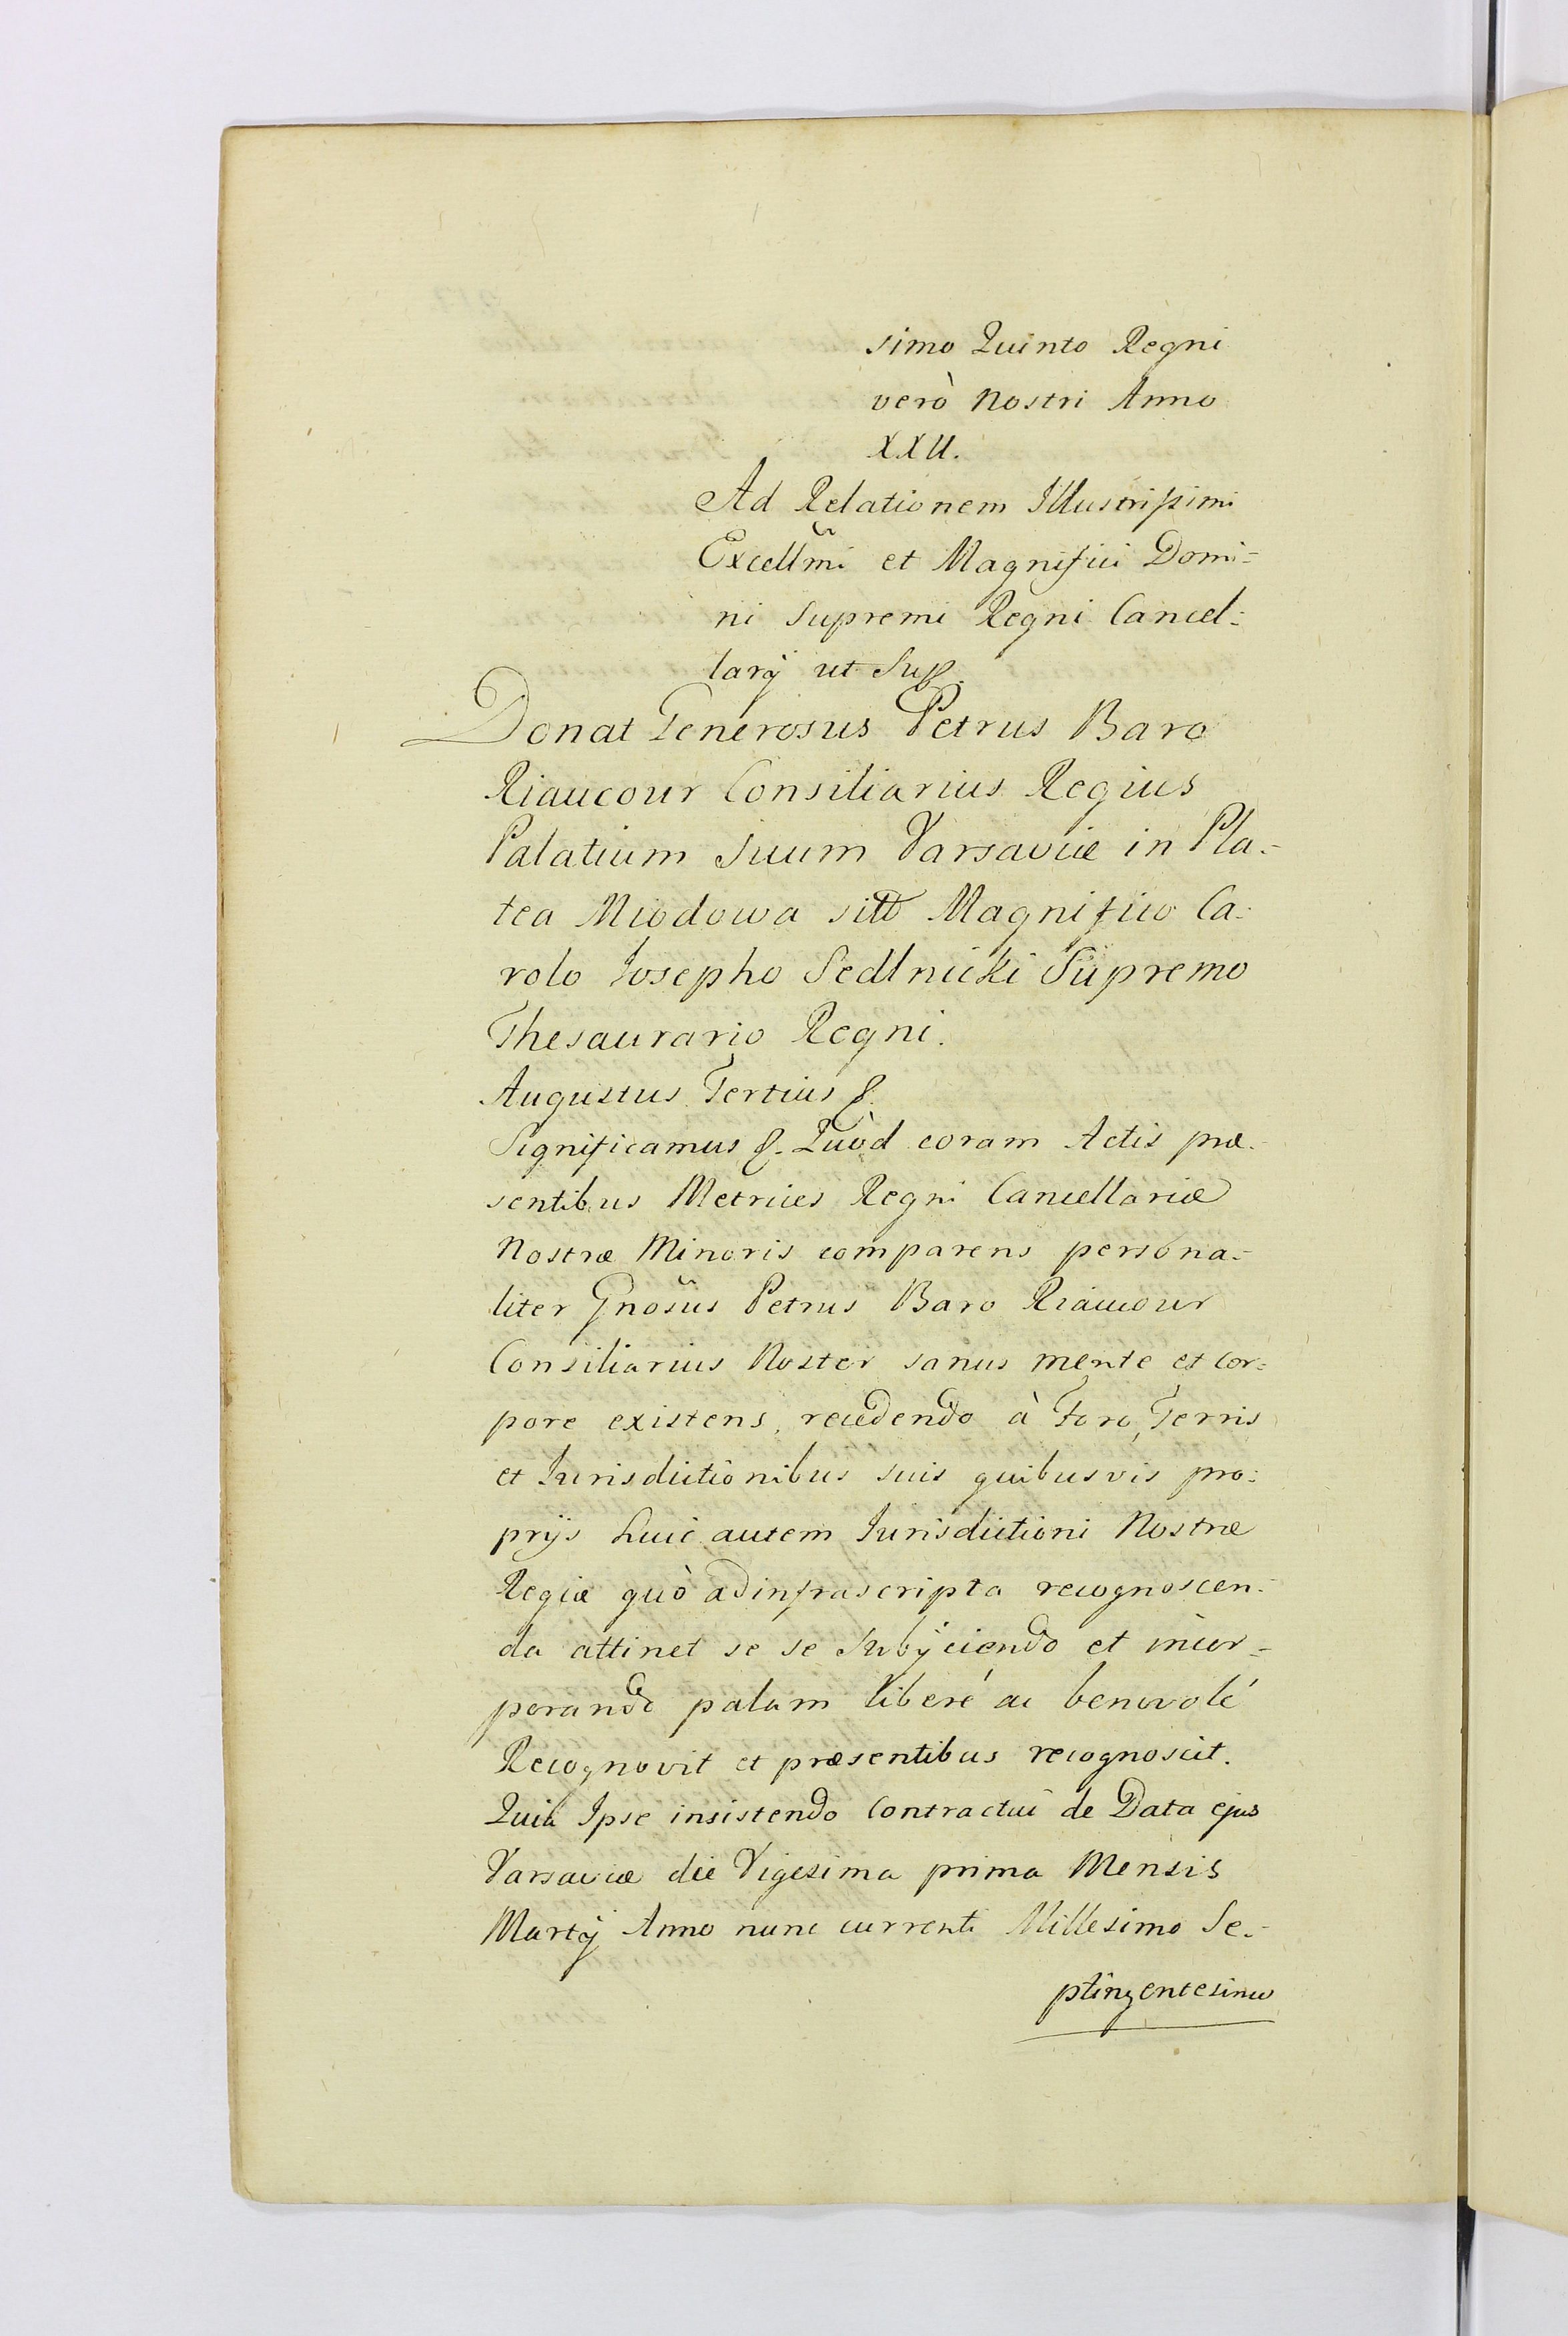 simo Quinto Regni
verò Nostri Anno
XXII.
Ad Relationem Illustrissimi
Excellm̃i et Magnifici Domi=
ni Supremi Regni Cancel=
larÿ ut Sup.
Donat Generosus Petrus Baro
Riaucour Consiliarius Regius
Palatium Suum Varsaviæ in Pla=
tea Miodowa sitt Magnifico Ca=
rolo Josepho Sedlnicki Supremo
Thesaurario Regni.
Augustus Tertius &.
Significamus &. Quòd coram Actis præ=
sentibus Metrices Regni Cancellariæ
Nostræ Minoris comparens persona=
liter Gnosũs Petrus Baro Riaucour
Consiliarius Noster sanus mente et cor=
pore existens, recedendo à Foro, Terris
et Jurisdictionibus suis quibusvis pro=
prÿs huic autem Jurisdictioni Nostræ
Regiæ quò ad infrascripta recognoscen=
da attinet se se subÿciendo et incor=
porando palam liberé ac benevolé
Recognovit et præsentibus recognoscit.
Quia Ipse insistendo Contractui de Data ejus
Varsaviæ die Vigesima prima Mensis
Martÿ Anno nunc currenti Millesimo Se=
ptingentesimo